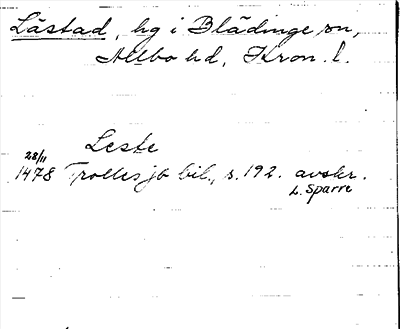 Låstad, hg i Blädinge sn,
Allbo hd, Kron. l.
Leste
28/11
1478 Trolles jb bil., s. 192. avskr.
L. Sparre